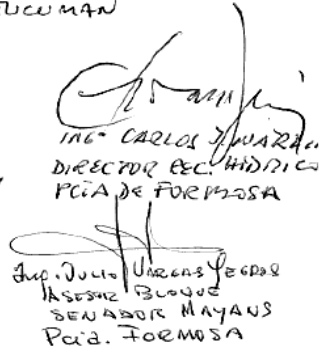 TUCUMAN
ING° CARLOS J.
DIRECTOR REC. HIDRICO
PCIA DE FORMOSA
Ing. Julio Vargas Yegros
ASESOR BLOQUE
SENADOR MAYANS
Pcia. FORMOSA